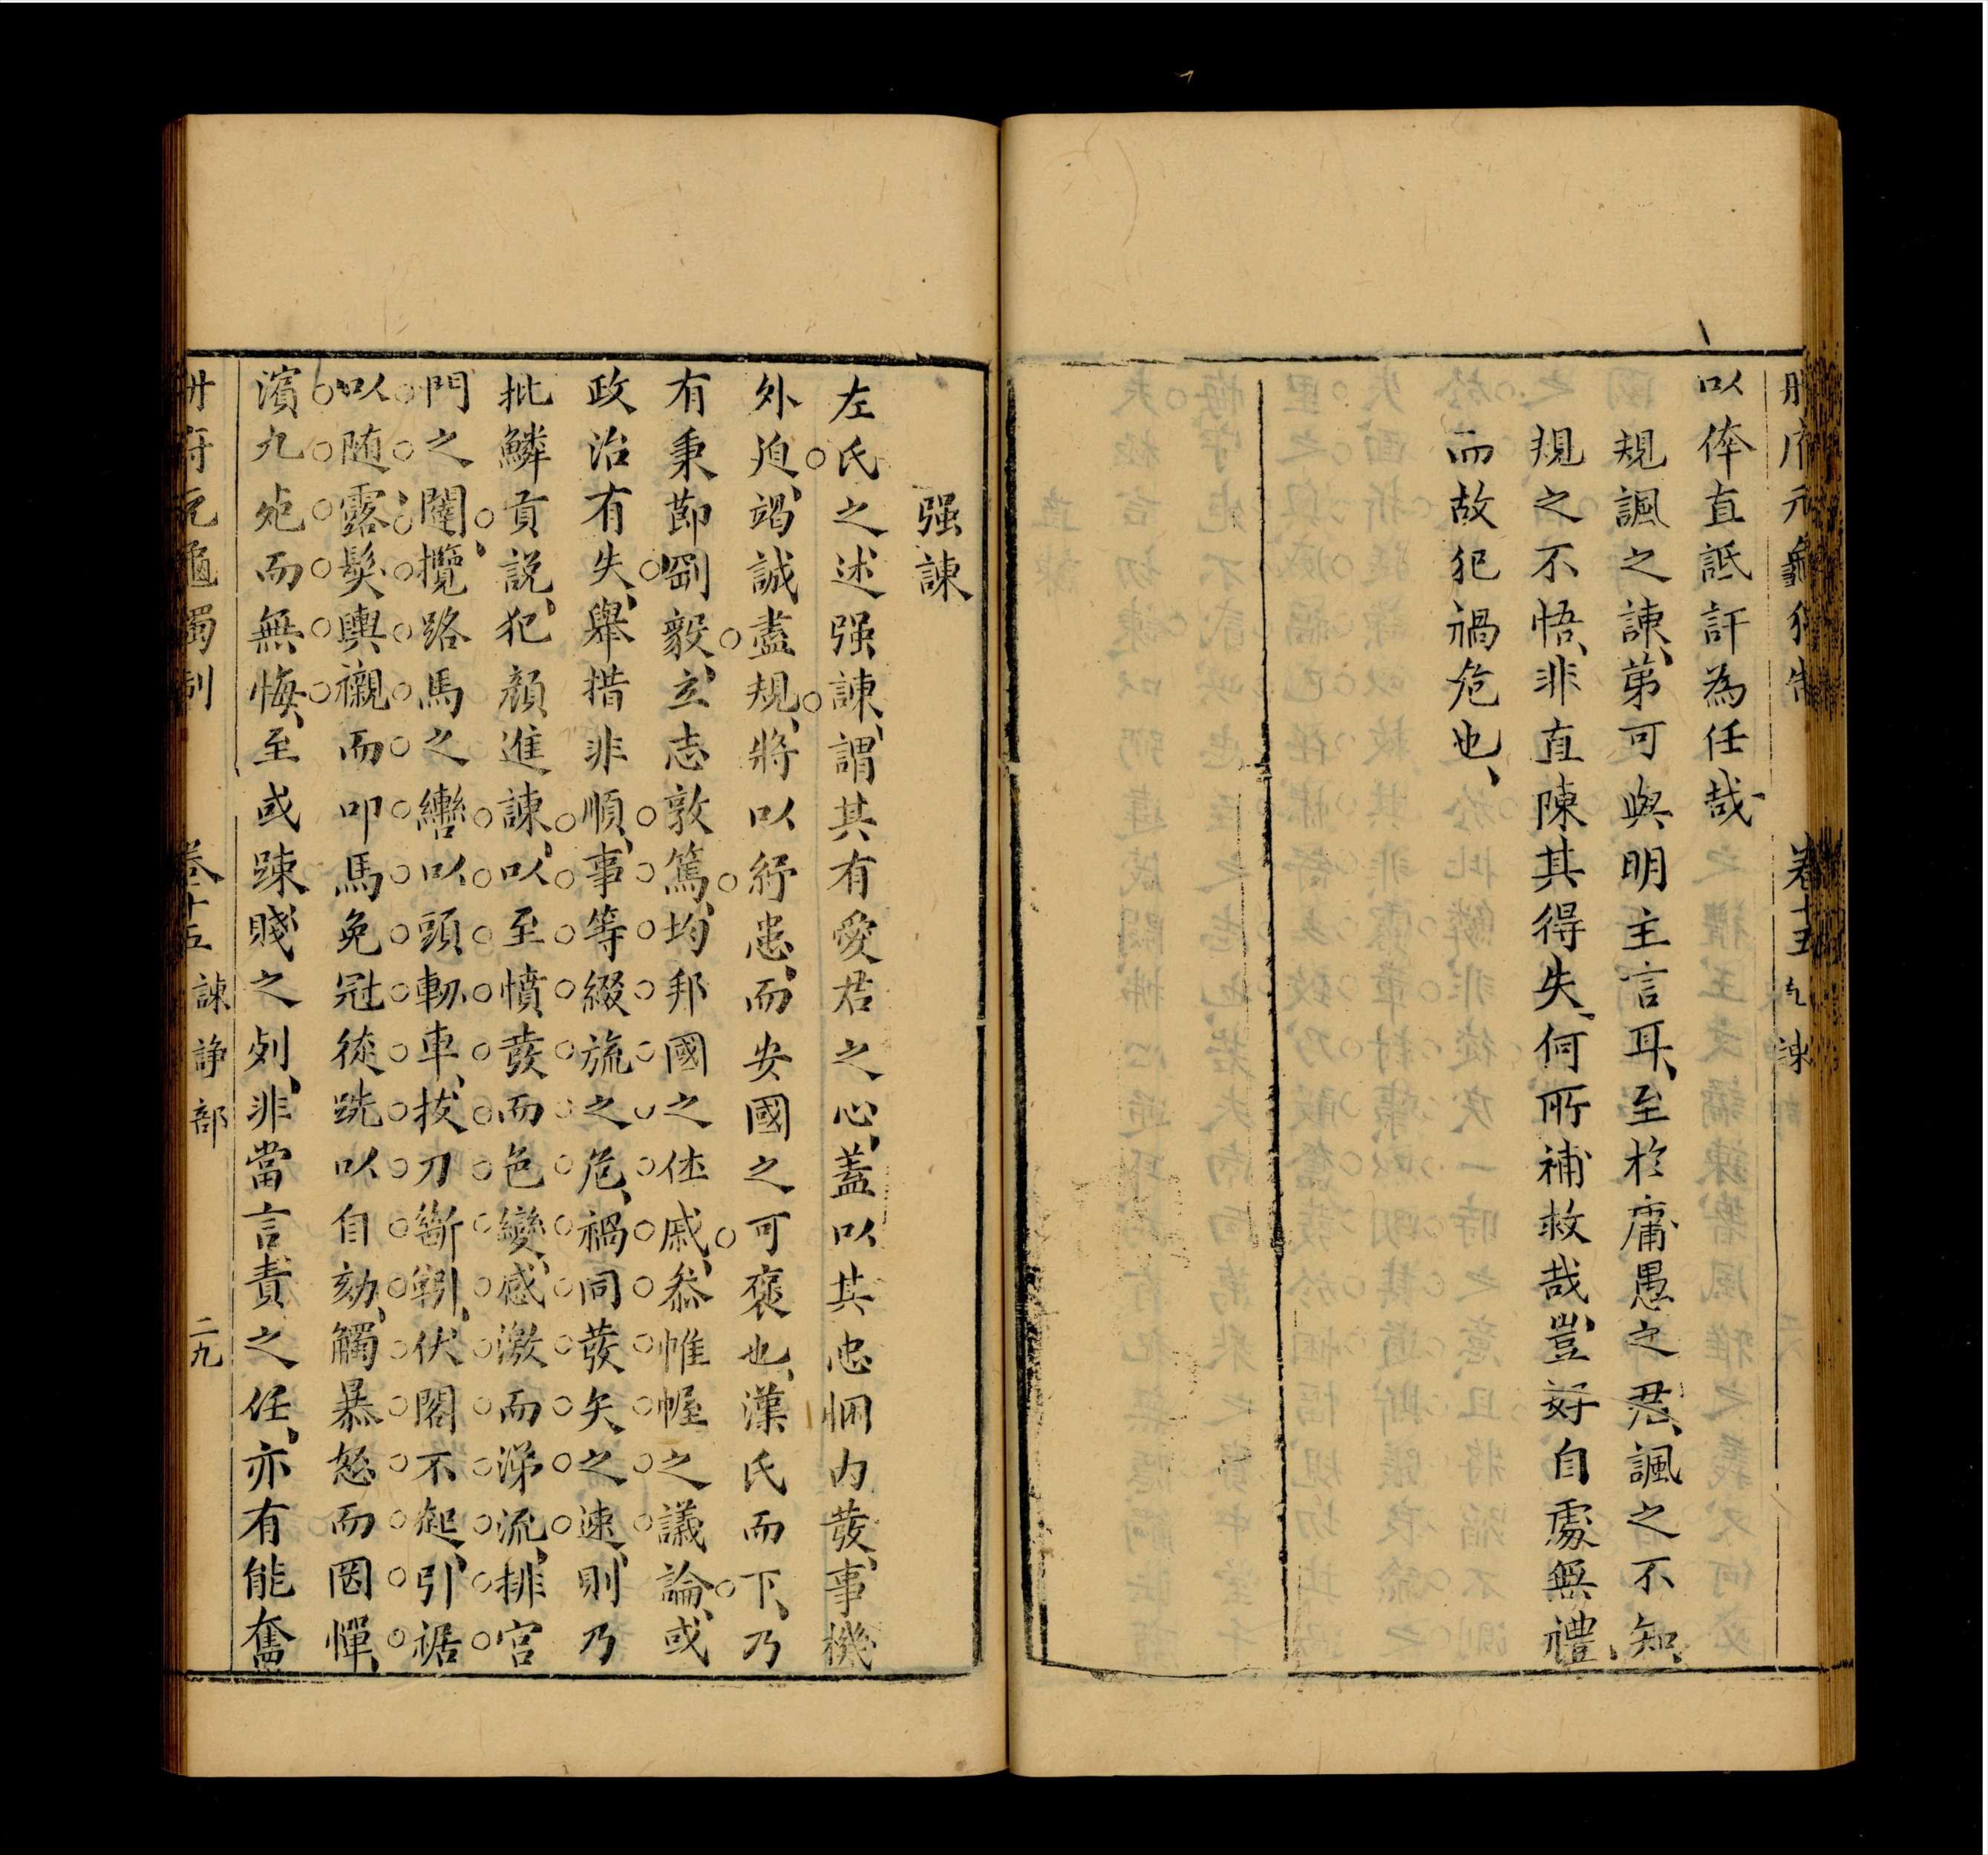 以倖直詆訐為任哉
規諷之諌第可與明主言耳、至於庸愚之君、諷之不知、
規之不悟、非直陳其得失、何所補救哉、豈好自處無禮、
而故犯禍危也、
强諌
左氏之述强諌、謂其有愛君之心、葢以其忠悃内發、事機
外迫、竭誠盡規、將以紓患、而安國之可褒也、漢氏而下、乃
有秉節剛毅、立志敦篤、均邦國之休戚、叅帷幄之議論、或
政治有失、舉措非順、事等綴旒之危、禍同發矢之速、則乃
批鱗貢説、犯顔進諌、以至憤發而色變、感激而涕流、排宮
門之闥、攬路馬之轡、以頭軔車、拔刀斷靷、伏閤不起、引裾
以随、露髮輿櫬而叩馬、免冠徒跣以自劾、觸暴怒而罔憚、
濱九死而無悔、至或踈賤之列、非當言責之任、亦有能奮
冊府元龜獨制
卷十五
諌諍部
二九